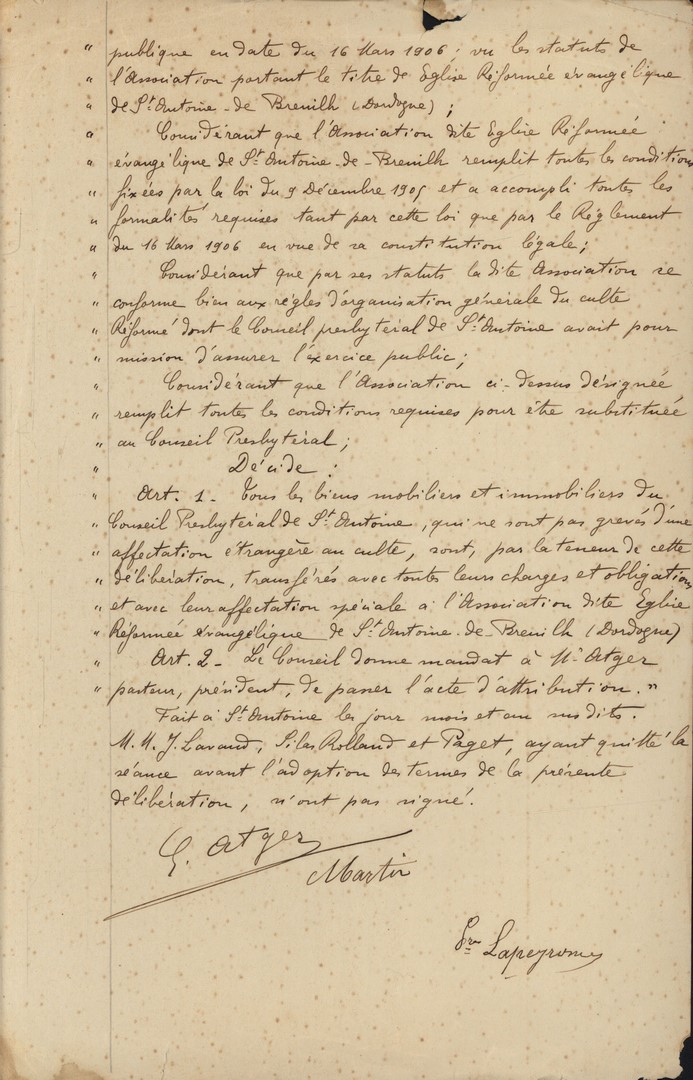 " publique en date du 16 Mars 1906 ; vu les statuts de
" l'Association portant le titre de Eglise Réformée évangélique
" de St Antoine-de-Breuilh (Dordogne) ;
" Considérant que l'Association dite Eglise Réformée
" évangélique de St Antoine-de-Breuilh remplit toutes les conditions
" fixées par la loi du 9 Décembre 1905 et a accompli toutes les
" formalités requises tant par cette loi que par le Règlement
" du 16 Mars 1906 en vue de sa constitution légale ;
" Considérant que par ses statuts la dite Association se
" conforme bien aux règles d'organisation générale du culte
" Réformé dont le Conseil presbytéral de St Antoine avait pour
" mission d'assurer l'éxercice public ;
" Considérant que l'Association ci-dessus désignée
" remplit toutes les conditions requises pour être substituée
" au Conseil Presbytéral ;
" Décide :
" Art. 1 - Tous les biens mobiliers et immobiliers du
" Conseil Presbytéral de St Antoine, qui ne sont pas grevés d'une
" affectation étrangère au culte, sont, par la teneur de cette
" délibération, transférés avec toutes leurs charges et obligations
" et avec leur affectation spéciale à l'Association dite Eglise
" Réformée évangélique de St Antoine-de-Breuilh (Dordogne)
" Art. 2 - Le Conseil donne mandat à Mr Atger
" pasteur, président, de passer l'acte d'attribution. "
Fait à St Antoine les jour mois et an susdits.
M. M. J. Lavaud, Silas Rolland et Paget, ayant quitté la
séance avant l'adoption des termes de la présente
délibération, n'ont pas signé.
G. Atger
Martin
Lapeyronie